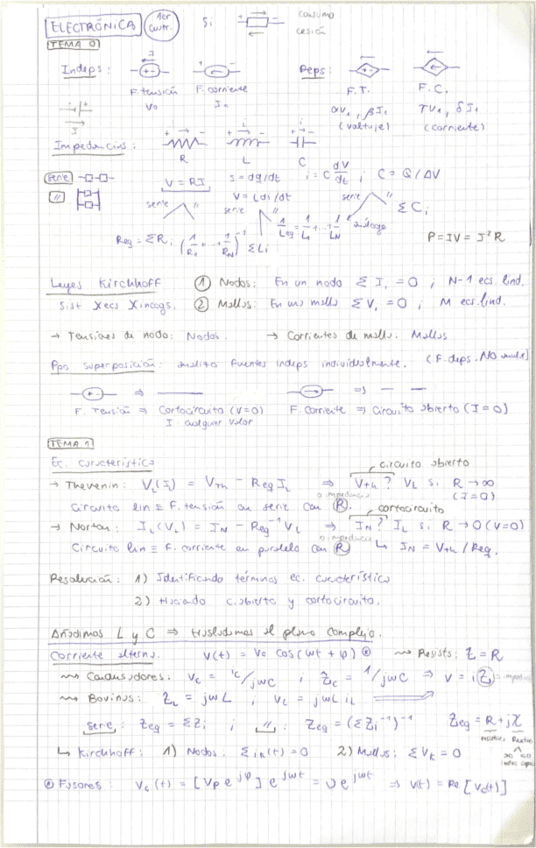 ELECTRÓNICA 1er Cuatr. Si consumo
cesión
TEMA 0
Indeps: F. tensión V₀ F. corriente I₀ Deps: F.T. αV₁, βI₁ (voltaje) F.C. γV₁, δI₁ (corriente)
Impedancias: R L C
Serie V = RI I = dq/dt i = C dV/dt ; C = Q/ΔV
// V = L di/dt
serie // serie // serie // ΣCᵢ
Req = ΣRᵢ (1/R₁ + ... + 1/R_N)⁻¹ ΣLᵢ 1/Leq = 1/L₁ + ... + 1/L_N análogo
P = IV = I²R
Leyes Kirchhoff ① Nodos: En un nodo ΣIᵢ = 0 ; N-1 ecs. lind.
Sist X ecs X incogs. ② Mallas: En una malla ΣVᵢ = 0 ; M ecs. lind.
→ Tensiones de nodo: Nodos. → Corrientes de malla: Mallas
Ppo superposición: analizo fuentes indeps individualmente. (F. deps. NO anulo)
F. Tensión ⇒ Cortocircuito (V=0) F. Corriente ⇒ Circuito abierto (I=0)
I cualquier valor
TEMA 1
Ec. característica circuito abierto
→ Thevenin: V_L(I_L) = V_Th − Req I_L ⇒ V_Th? V_L si R→∞ (I=0)
o impedancia
Circuito lin ≡ F. tensión en serie con R. cortocircuito
→ Norton: I_L(V_L) = I_N − Req⁻¹ V_L ⇒ I_N? I_L si R→0 (V=0)
o impedancia
Circuito lin ≡ F. corriente en paralelo con R ↳ I_N = V_Th/Req.
Resolución: 1) Identificando términos ec. característica
2) Haciendo c. abierto y cortocircuito.
Añadimos L y C ⇒ trasladamos al plano complejo.
Corriente alterna. V(t) = V₀ cos(ωt + φ) ⊗ ⤳ Resists: Z = R
⤳ Condensadores: V_C = i_C/jωC ; Z_C = 1/jωC ⇒ V = i Z → impedancia
⤳ Bobinas: Z_L = jωL , V_L = jωL i_L
serie: Zeq = ΣZᵢ ; //: Zeq = (ΣZᵢ⁻¹)⁻¹ Zeq = R + jX
↳ Kirchhoff: 1) Nodos. Σ i_k(t) = 0 2) Mallas: ΣV_k = 0
⊗ Fasores: V_c(t) = [V_P e^{jφ}] e^{jωt} = v e^{jωt} ⇒ V(t) = Re[V_c(t)]